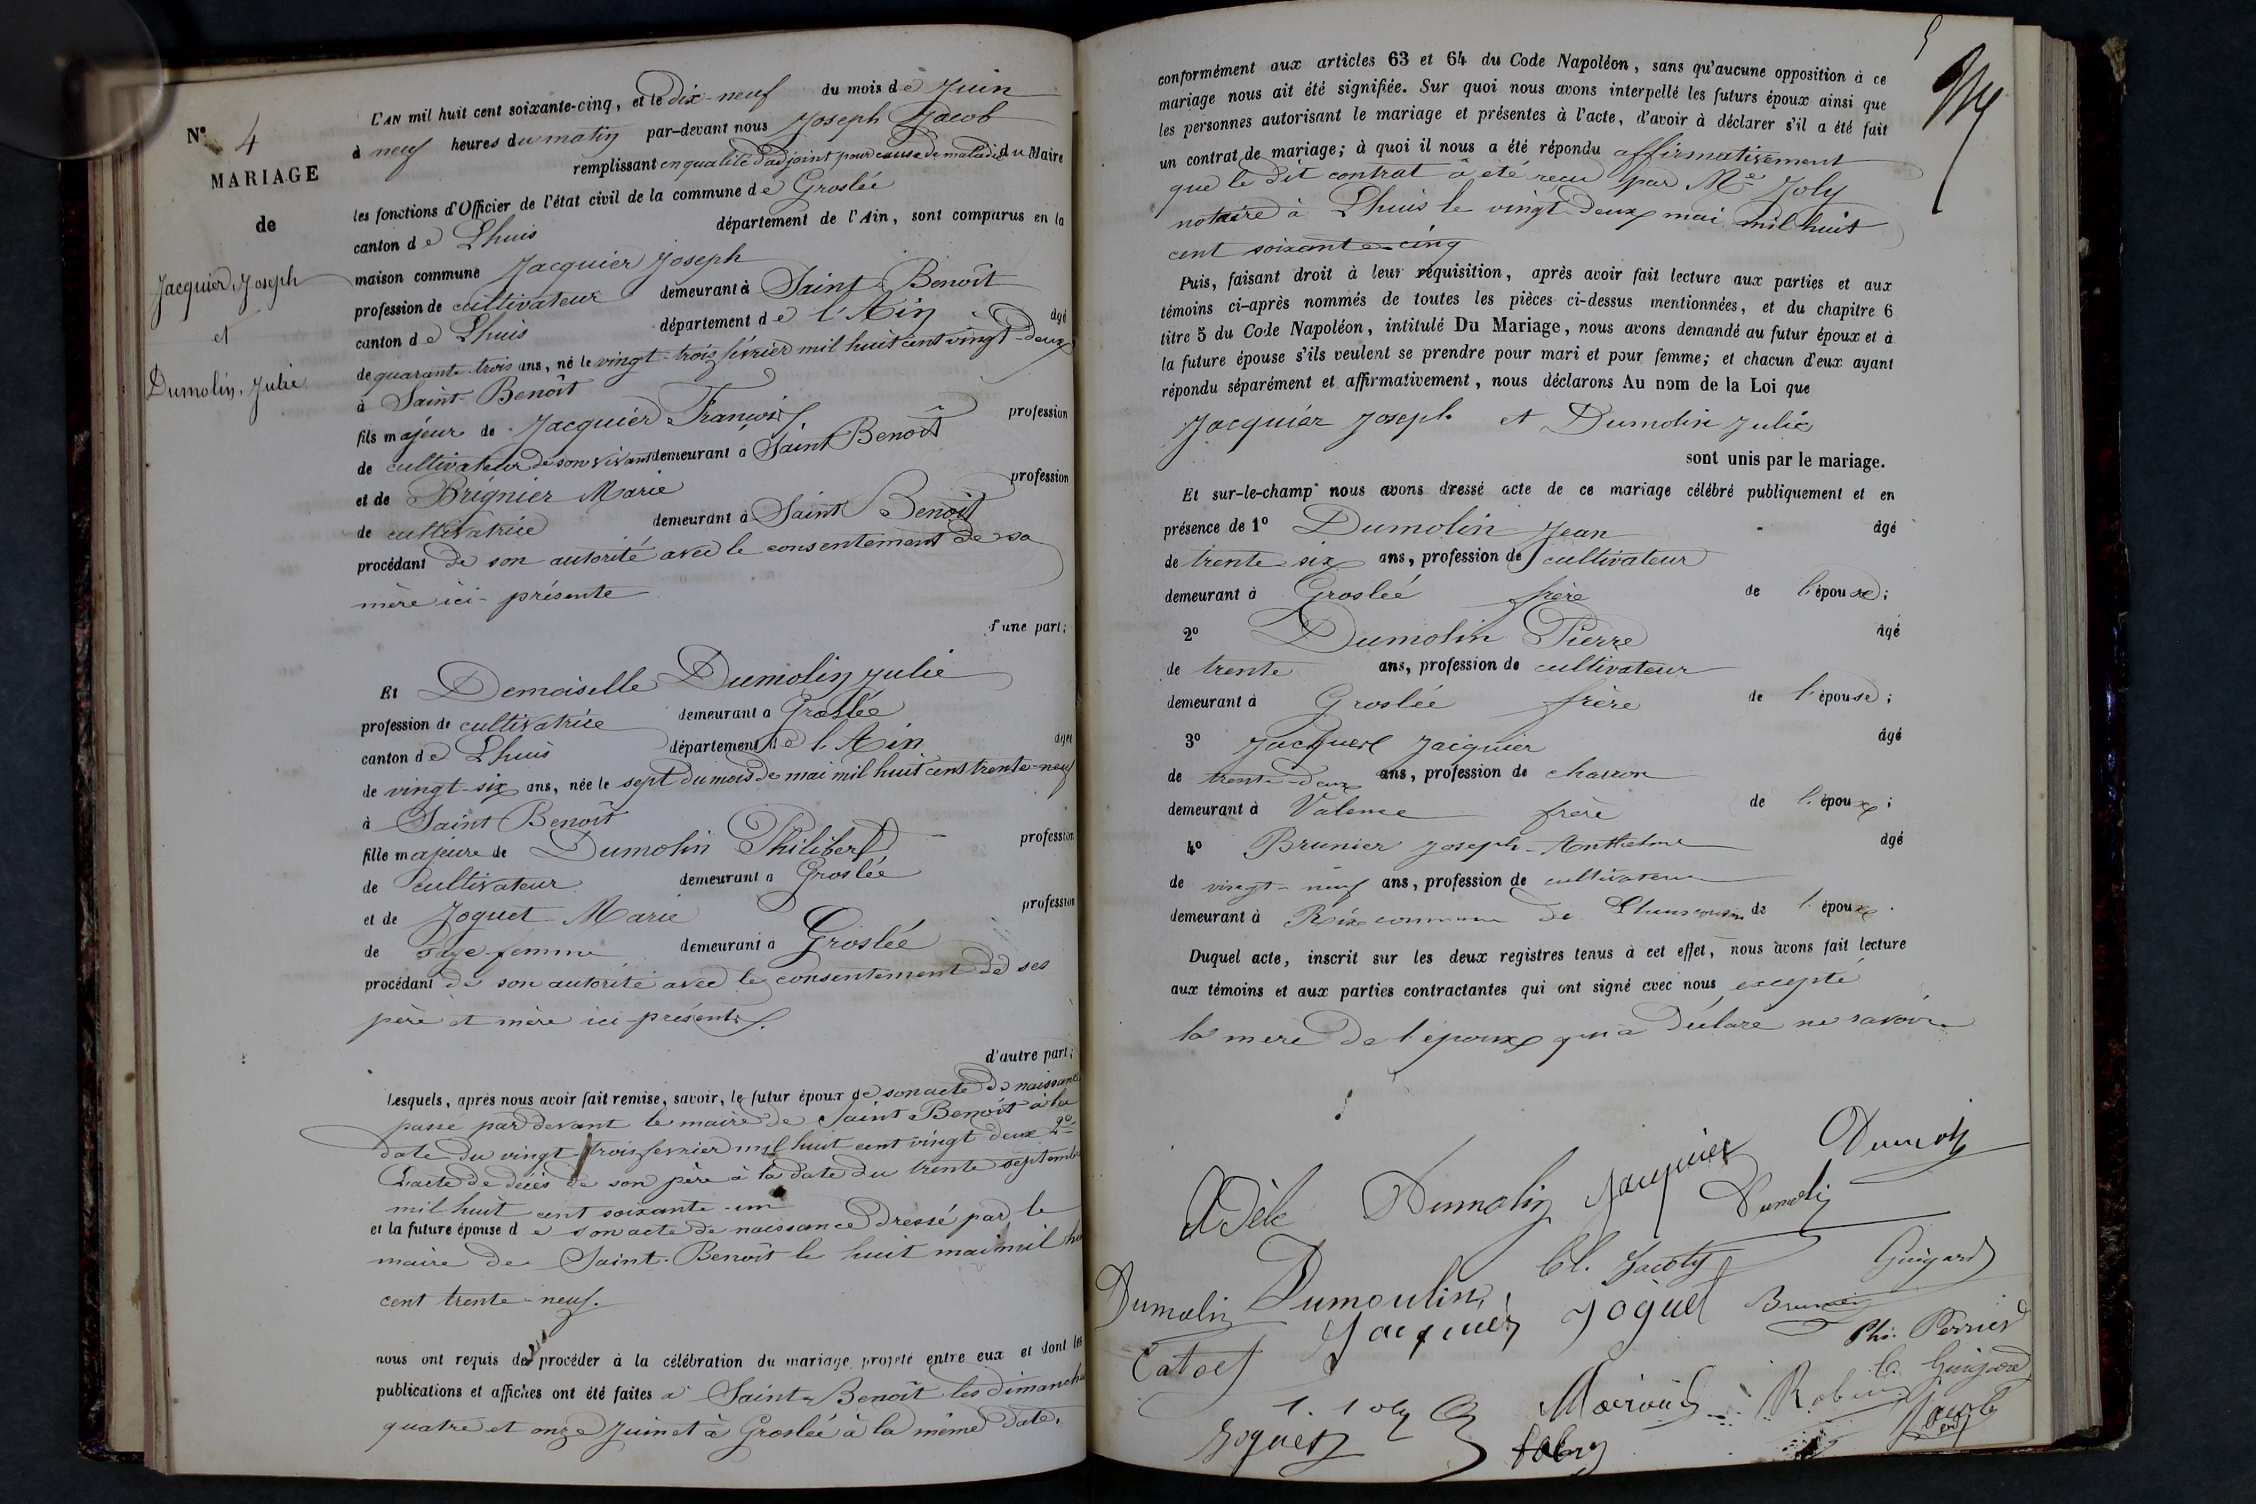 N° 4
MARIAGE
de
Jacquier, Joseph
et
Dumolin, Julie
L'AN mil huit cent soixante-cinq, et le dix-neuf du mois de Juin
à neuf heures du matin par-devant nous Joseph Jacob
remplissant en qualité d'adjoint, pour cause de maladie du Maire
les fonctions d'Officier de l'état civil de la commune de Groslée
canton de Lhuis département de l'Ain, sont comparus en la
maison commune Jacquier Joseph
profession de cultivateur demeurant à Saint-Benoît
canton de Lhuis département de l'Ain âgé
de quarante trois ans, né le vingt-trois février mil huit cent vingt-deux
à Saint-Benoît
fils majeur de Jacquier François profession
de cultivateur de son vivant demeurant à Saint Benoît
et de Brignier Marie profession
de cultivatrice demeurant à Saint Benoît
procédant de son autorité avec le consentement de sa
mère ici présente
d'une part;
Et Demoiselle Dumolin Julie
profession de cultivatrice demeurant à Groslée
canton de Lhuis département de l'Ain âgée
de vingt-six ans, née le sept du mois de mai mil huit cent trente-neuf
à Saint Benoît
fille majeure de Dumolin Philibert profession
de cultivateur demeurant à Groslée
et de Joguet Marie profession
de sage-femme demeurant à Groslée
procédant de son autorité avec le consentement de ses
père et mère ici présents.
d'autre part;
Lesquels, après nous avoir fait remise, savoir, le futur époux de son acte de naissance
passé par devant le maire de Saint Benoît à la
date du vingt-trois février mil huit cent vingt deux 2°
L'acte de décès de son père à la date du trente septembre
mil huit cent soixante-un
et la future épouse de son acte de naissance dressé par le
maire de Saint-Benoît le huit mai mil hu
cent trente-neuf.
nous ont requis de procéder à la célébration du mariage projeté entre eux et dont les
publications et affiches ont été faites à Saint-Benoît les dimanches
quatre et onze Juin et à Groslée à la même date.
5
conformément aux articles 63 et 64 du Code Napoléon, sans qu'aucune opposition à ce
mariage nous ait été signifiée. Sur quoi nous avons interpellé les futurs époux ainsi que
les personnes autorisant le mariage et présentes à l'acte, d'avoir à déclarer s'il a été fait
un contrat de mariage; à quoi il nous a été répondu affirmativement
que le dit contrat a été reçu par Me Joly
notaire à Lhuis le vingt-deux mai mil huit
cent soixante-cinq
Puis, faisant droit à leur réquisition, après avoir fait lecture aux parties et aux
témoins ci-après nommés de toutes les pièces ci-dessus mentionnées, et du chapitre 6
titre 5 du Code Napoléon, intitulé Du Mariage, nous avons demandé au futur époux et à
la future épouse s'ils veulent se prendre pour mari et pour femme; et chacun d'eux ayant
répondu séparément et affirmativement, nous déclarons Au nom de la Loi que
Jacquier Joseph et Dumolin Julie
sont unis par le mariage.
Et sur-le-champ nous avons dressé acte de ce mariage célébré publiquement et en
présence de 1° Dumolin Jean âgé
de trente-six ans, profession de cultivateur
demeurant à Groslée frère de l'épouse;
2° Dumolin Pierre âgé
de trente ans, profession de cultivateur
demeurant à Groslée frère de l'épouse;
3° Jacquier âgé
de trente-deux ans, profession de charron
demeurant à Valence frère de l'époux;
4° Brunier Joseph-Anthelme âgé
de vingt-neuf ans, profession de cultivateur
demeurant à Rix commune de Lhuis cousin de l'époux.
Duquel acte, inscrit sur les deux registres tenus à cet effet, nous avons fait lecture
aux témoins et aux parties contractantes qui ont signé avec nous excepté
la mère de l'époux qui a déclaré ne savoir
Adèle Dumolin Jacquier Dumolin
Dumolin
Cl. Jacob Guigard
Dumolin Dumoulin, Joguet Brunier
Jacquier Phi. Perrier
Guigard
Robin
Joguet